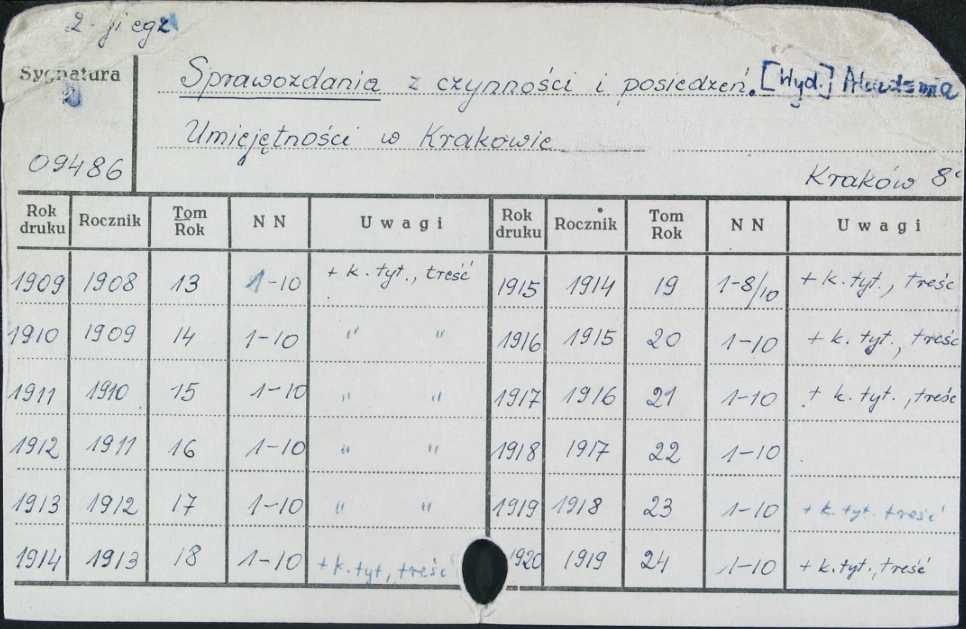 2-ji egz
Sygnatura
Sprawozdania z czynności i posiedzeń. [Wyd.] Akademia
Umiejętności w Krakowie
09486
Kraków 8°
Rok druku Rocznik Tom Rok NN Uwagi Rok druku Rocznik Tom Rok NN Uwagi
1909 1908 13 1-10 + k. tyt., treść 1915 1914 19 1-8/10 + k. tyt., treść
1910 1909 14 1-10 " " 1916 1915 20 1-10 + k. tyt., treść
1911 1910 15 1-10 " " 1917 1916 21 1-10 + k. tyt., treść
1912 1911 16 1-10 " " 1918 1917 22 1-10
1913 1912 17 1-10 " " 1919 1918 23 1-10 + k. tyt. treść
1914 1913 18 1-10 + k. tyt., treść 1920 1919 24 1-10 + k. tyt., treść